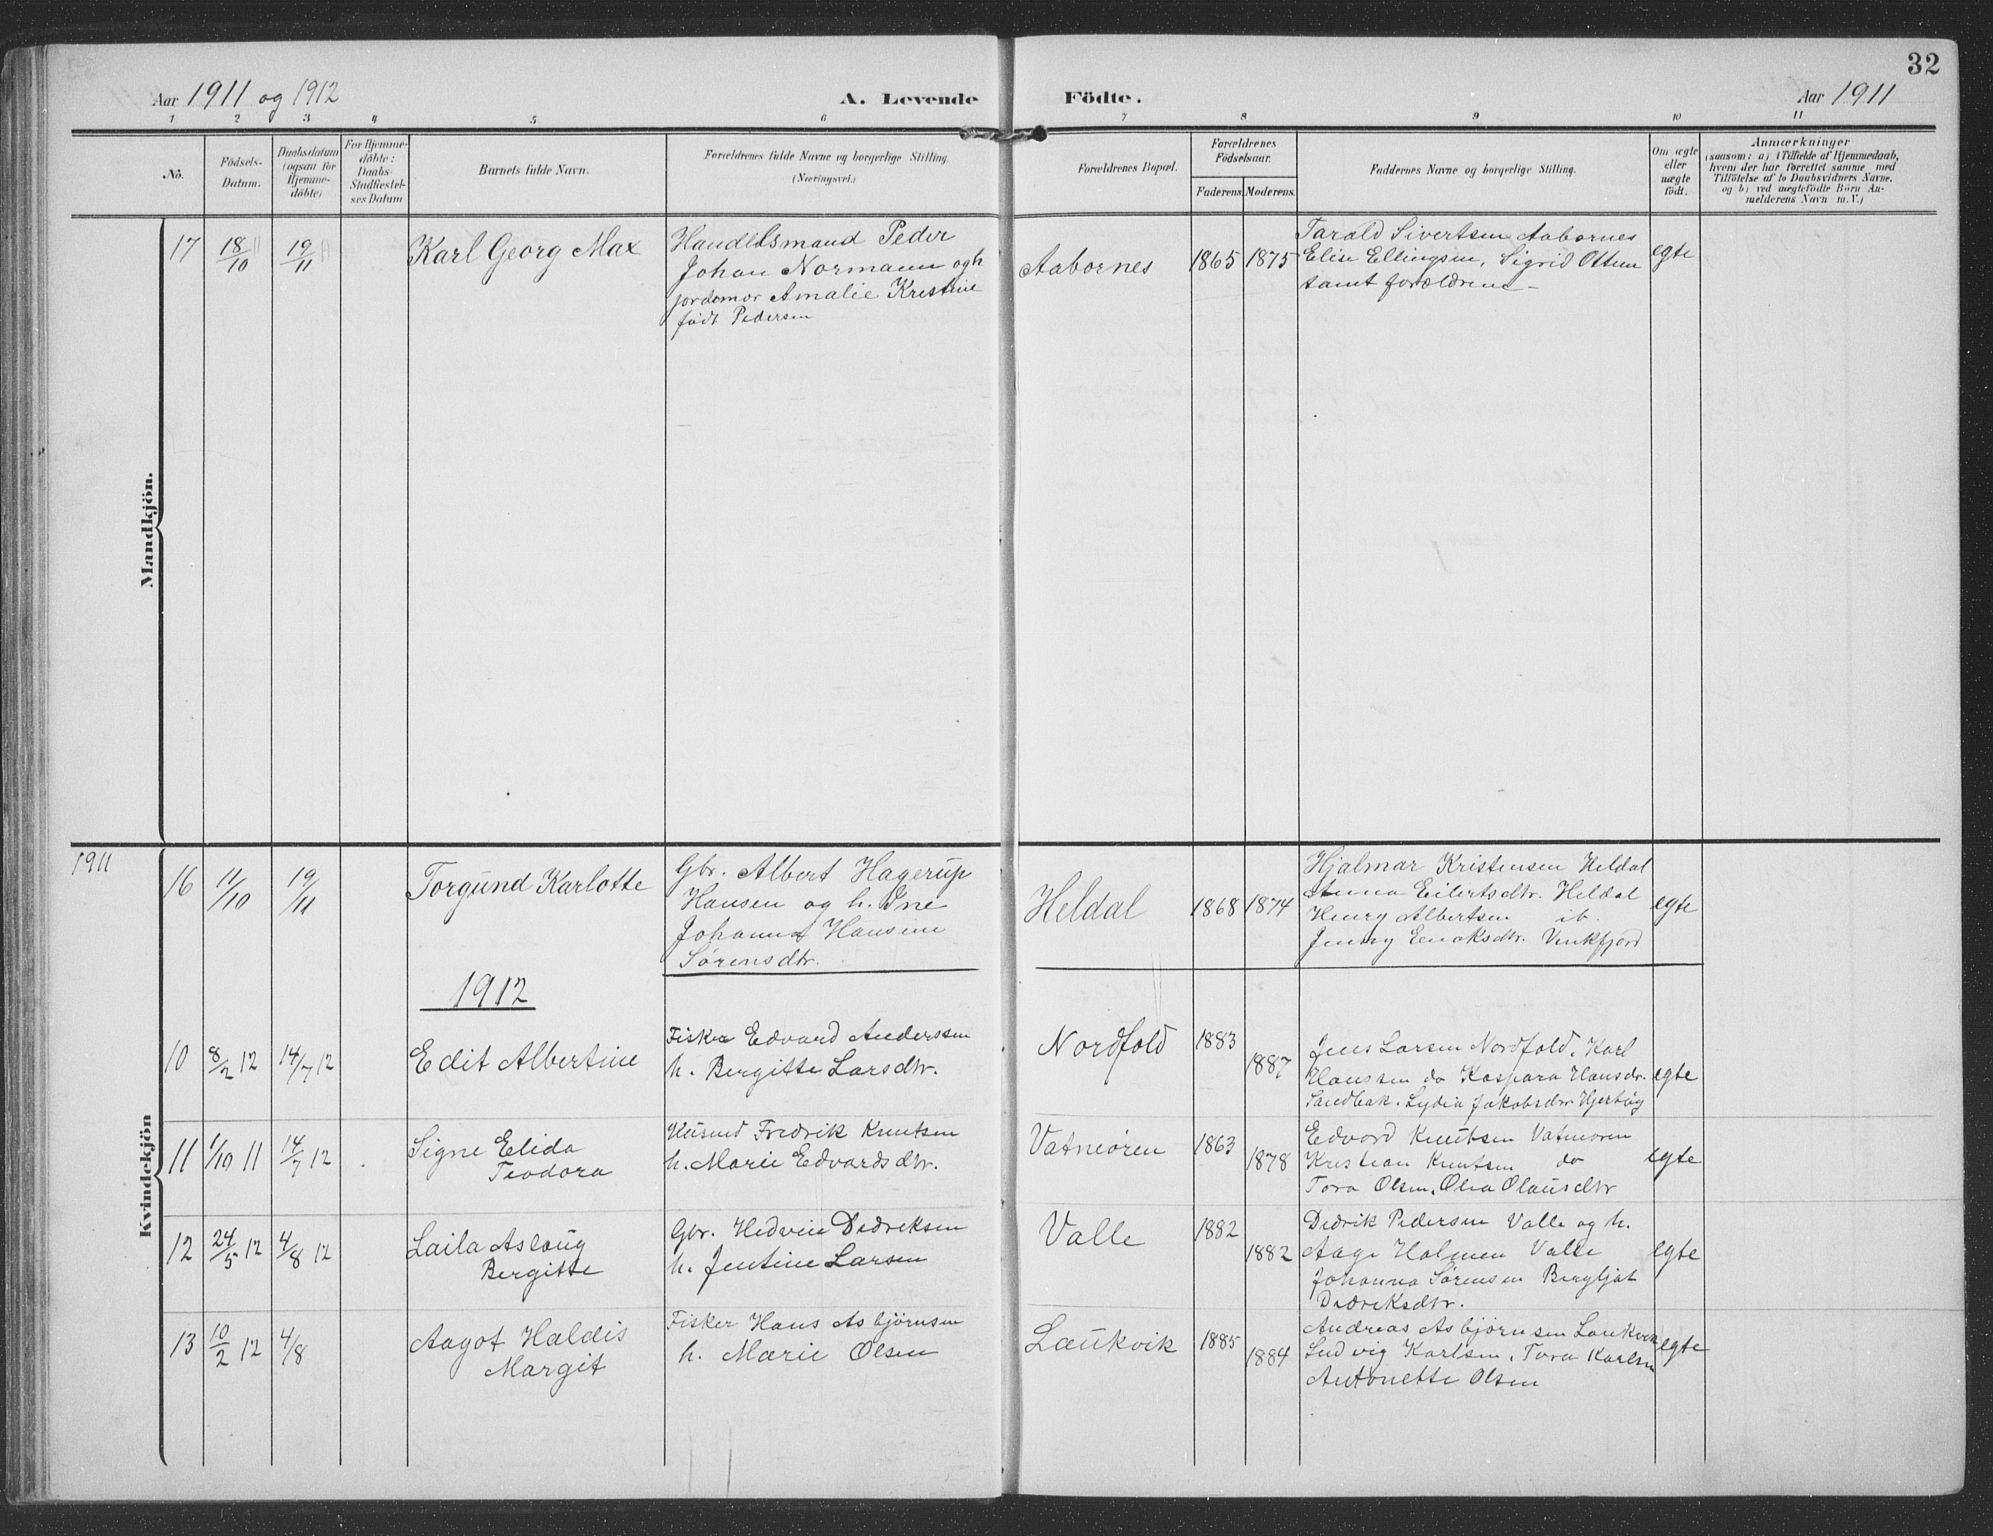 32
Aar 1911 og 1912
A. Levende Födte.
Aar 1911
1 2 3 4 5 6 7 8 9 10 11
No.
Födsels-
Datum.
Daabsdatum
(ogsaa for
Hjemme-
döbte)
For Hjemme-
döbte:
Daabs-
Stadfæstel-
ses Datum
Barnets fulde Navn.
Forældrenes fulde Navne og borgerlige Stilling.
(Næringsvei.)
Forældrenes Bopæl.
Forældrenes
Födselsaar.
Faderens. Moderens.
Faddernes Navne og borgerlige Stilling.
Om ægte
eller
uægte
födt.
Anmærkninger
(saasom: a) i Tilfælde af Hjemmedaab,
hvem der har forrettet samme med
Tilföielse af to Daabsvidners Navne.
og b) ved uægtefödte Börn An-
melderens Navn m. V.)
Mandkjön.
17 18/10 19/11 Karl Georg Max
Handelsmand Peder
Johan Normann og h
jordemor Amalie Kristine
født Pedersen
Aabornes 1865 1875
Tarald Sivertsen Aabornes
Elise Ellingsen, Sigrid Ottem
samt forældrene-
egte
Kvindekjön
1911
16 11/10 19/11 Torgund Karlotte
Gbr. Albert Hagerup
Hansen og h. Ine
Johanna Hansine
Sørensdtr.
Heldal 1868 1874
Hjalmar Kristensen Heldal
Anna Eilertsdtr. Heldal
Henry Albertsen ib.
Jenny Enoksdtr. Vinkfjord
egte
1912
10 8/2 12 14/7 12 Edit Albertine
Fisker Edvard Anderssen
h. Bergitte Larsdtr.
Nordfold 1883 1887
Jens Larsen Nordfold, Karl
Hanssen do Kaspara Hansdr.
Sandbak. Lydia Jakobsdtr
egte
11 1/10 11 14/7 12 Signe Elida
Teodora
Husmd Fredrik Knutsen
h. Marie Edvardsdtr.
Vatneören 1863 1878
Edvard Knutsen Vatnøren
Kristian Knutsen do
Tora Olsen, Olea Olausdtr
egte
12 24/5 12 4/8 12 Laila Aslaug
Bergitte
Gbr. Hedvin Dedreksen
h. Jentine Larsen
Valle 1882 1882
Dedrik Pedersen Valle og h.
Aage Holmen Valle
Johanna Sørensen Bergljot
Dedreksdtr.
egte
13 10/2 12 4/8 Aagot Haldis
Margit
Fisker Hans Asbjørnsen
h. Marie Olsen
Laukvik 1885 1884
Andreas Asbjørnsen Laukvik
Ludvig Karlsen, Tora Karlsen
Antonette Olsen
egte